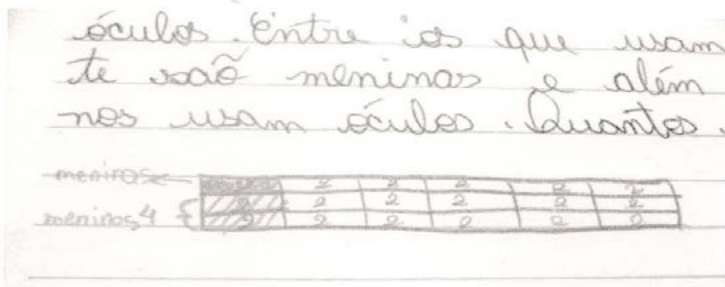 óculos. Entre os que usam
te saõ meninas e além
nos usam óculos. Quantos.
meninas
2 2 2 2 2
meninos 4 { 2 2 2 2 2 2
2 2 2 2 2 2